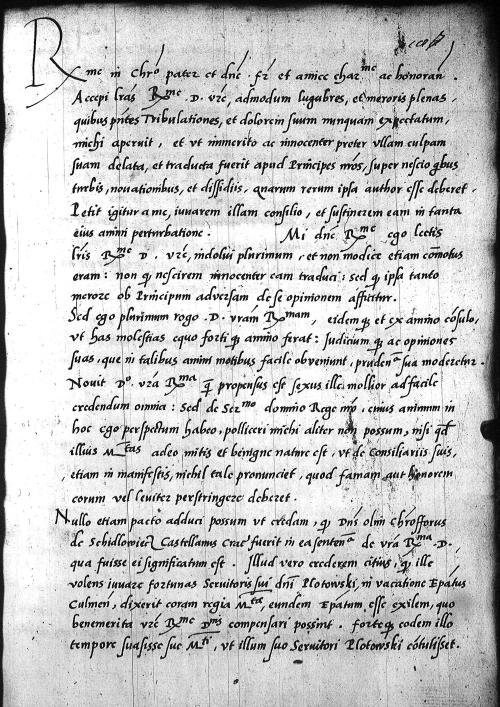 Rme in Chro pater et dne . fr et amice charme ac honoran .
Accepi lras Rme . D . vre, admodum lugubres, et meroris plenas,
quibus pntes Tribulationes, et dolorem suum nunquam expectatum,
michi aperuit, et vt immerito ac innocenter preter vllam culpam
suam delata, et traducta fuerit apud Principes nros, super nescio qbus
turbis, nouationibus, et dissidiis, quarum rerum ipsa author esse deberet .
Petit igitur a me, iuuarem illam consilio, et sustinerem eam in tanta
eius animi perturbatione . Mi dne Rme ego lectis
lris Rme D . vre, indolui plurimum, et non modice etiam comotus
eram : non q nescirem innocenter eam traduci : sed q ipsa tanto
merore ob Principum aduersam de se opinionem afficitur .
Sed ego plurimum rogo . D . vram Rmam, eidemq et ex animo cosulo,
vt has molestias equo fortiq animo ferat : Iudicium q ac opiniones
suas, que in talibus animi motibus facile obueniunt, prudena sua moderetur .
Nouit Do vra Rma q propensus est sexus ille mollior ad facile
credendum omnia : Sed de Sermo domino Rege nro, cuius animum in
hoc ego perspectum habeo, polliceri michi aliter non possum, nisi qd
illius Mtas adeo mitis et benigne nature est, vt de Consiliariis suis,
etiam in manifestis, nichil tale pronunciet, quod famam aut honorem
eorum vel leuiter perstringere deberet .
Nullo etiam pacto adduci possum vt credam, q Dns olim Chrofforus
de Schidlowiecz Castellanus Crac fuerit in ea sentena de vra Rma . D .
qua fuisse ei significatum est . Illud vero crederem citius, q ille
volens iuuare fortunas Seruitoris sui dni Plotowski, in vacatione Epatus
Culmen, dixerit coram regia Mta, eundem Epatum esse exilem, quo
benemerita vre Rme Dnis compensari possint . forteq eodem illo
tempore suasisse sue Mti, vt illum suo Seruitori Plotowski cotulisset .